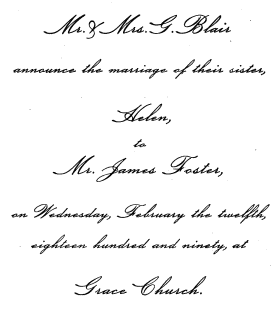 Mr. & Mrs. G. Blair
announce the marriage of their sister,
Helen,
to
Mr. James Foster,
on Wednesday, February the twelfth,
eighteen hundred and ninety, at
Grace Church.